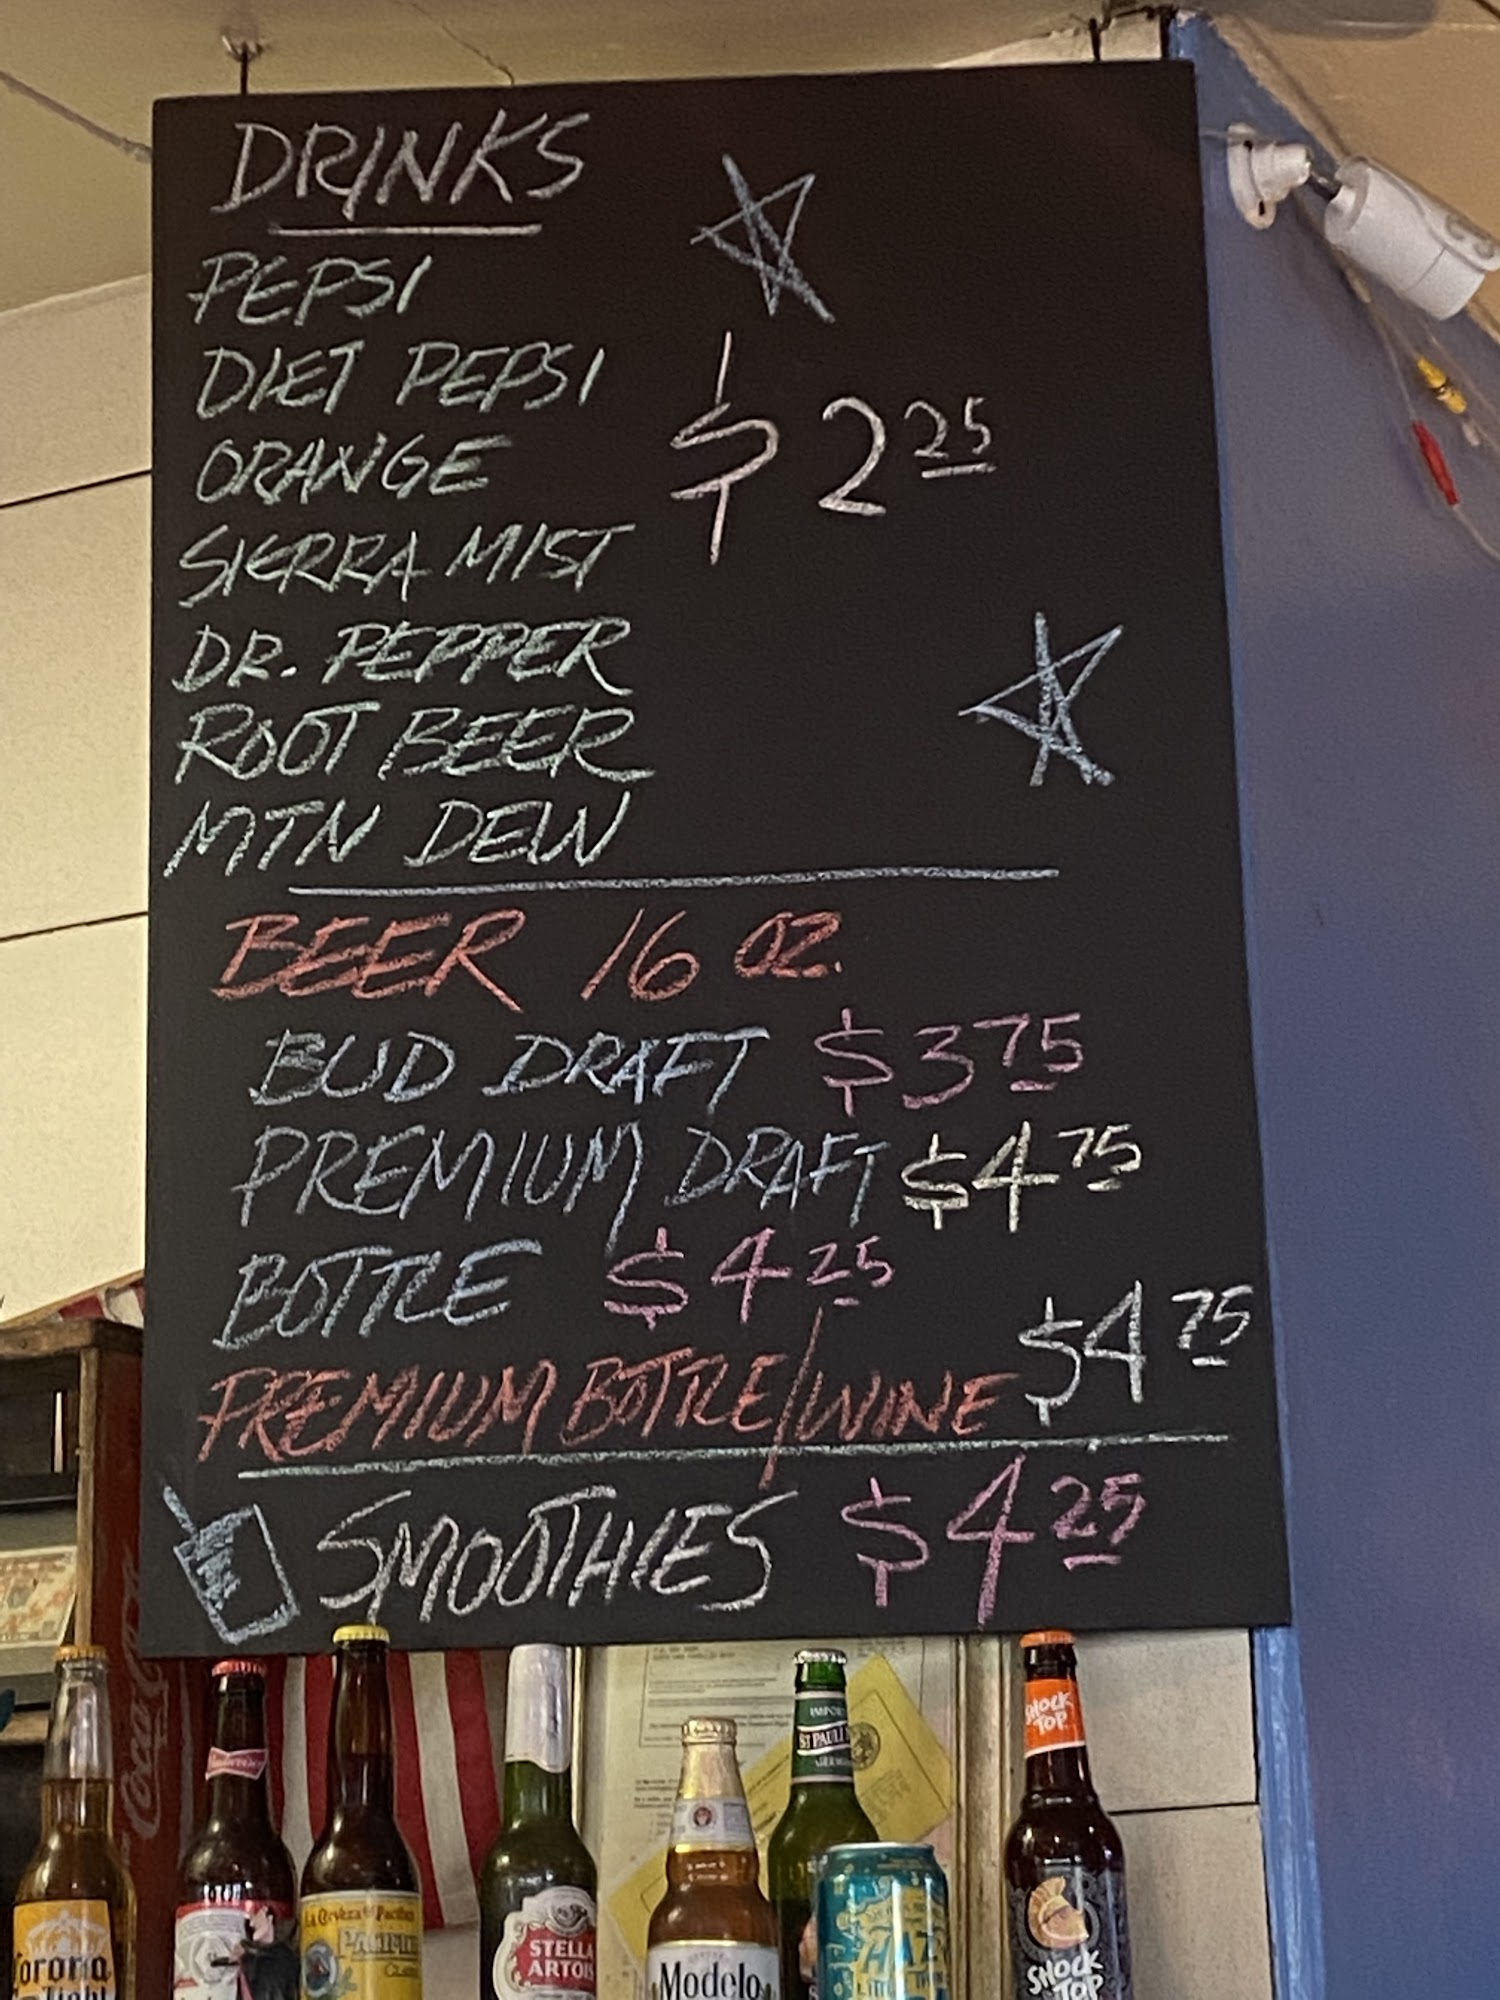 DRINKS
PEPSI
DIET PEPSI
ORANGE
$2 25
SIERRA MIST
DR. PEPPER
ROOT BEER
MTN DEW
BEER 16 OZ.
BUD DRAFT $3 75
PREMIUM DRAFT $4 75
BOTTLE $4 25
PREMIUM BOTTLE/WINE $4 75
SMOOTHIES $4 25
Coca-Cola
SHOCK
TOP
ST PAULI
La Cerveza del Pacifico
PACIFICO
STELLA
ARTOIS
Corona
Light
Modelo
HAZY
SHOCK
TOP